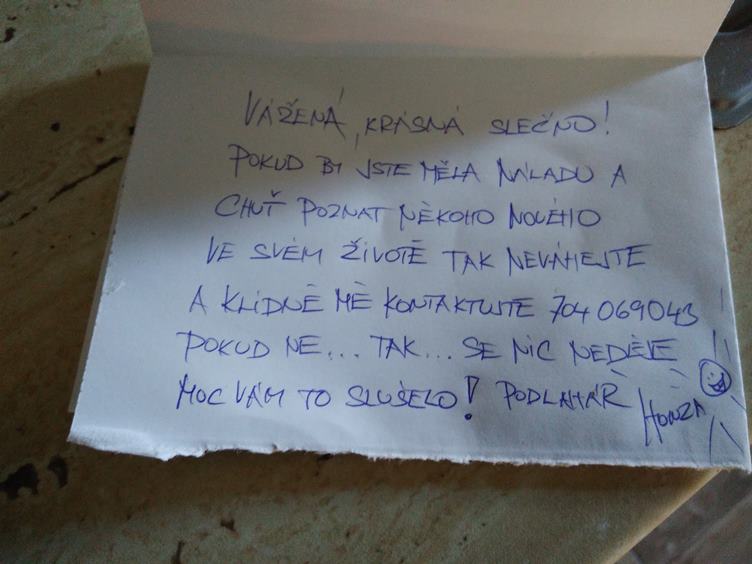 VÁŽENÁ, KRÁSNÁ SLEČNO!
POKUD BI JSTE MĚLA NÁLADU A
CHUŤ POZNAT NĚKOHO NOVÉHO
VE SVÉM ŽIVOTĚ TAK NEVÁHEJTE
A KLIDNĚ MĚ KONTAKTUJTE 704 069043
POKUD NE... TAK... SE NIC NEDĚJE!
MOC VÁM TO SLUŠELO! PODLAHÁŘ HONZA